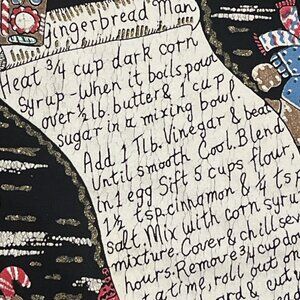 Gingerbread Man
Heat 3/4 cup dark corn
syrup - when it boils, pour
over 1/2 lb. butter & 1 cup
sugar in a mixing bowl.
Add 1 Tlb. Vinegar & beat
Until smooth Cool. Blend
in 1 egg Sift 5 cups flour,
1 1/2 tsp. cinnamon & 1/4 tsp
salt. Mix with corn syru
mixture. Cover & chill sev
hours. Remove 3/4 cup do
a time, roll out on
& cut